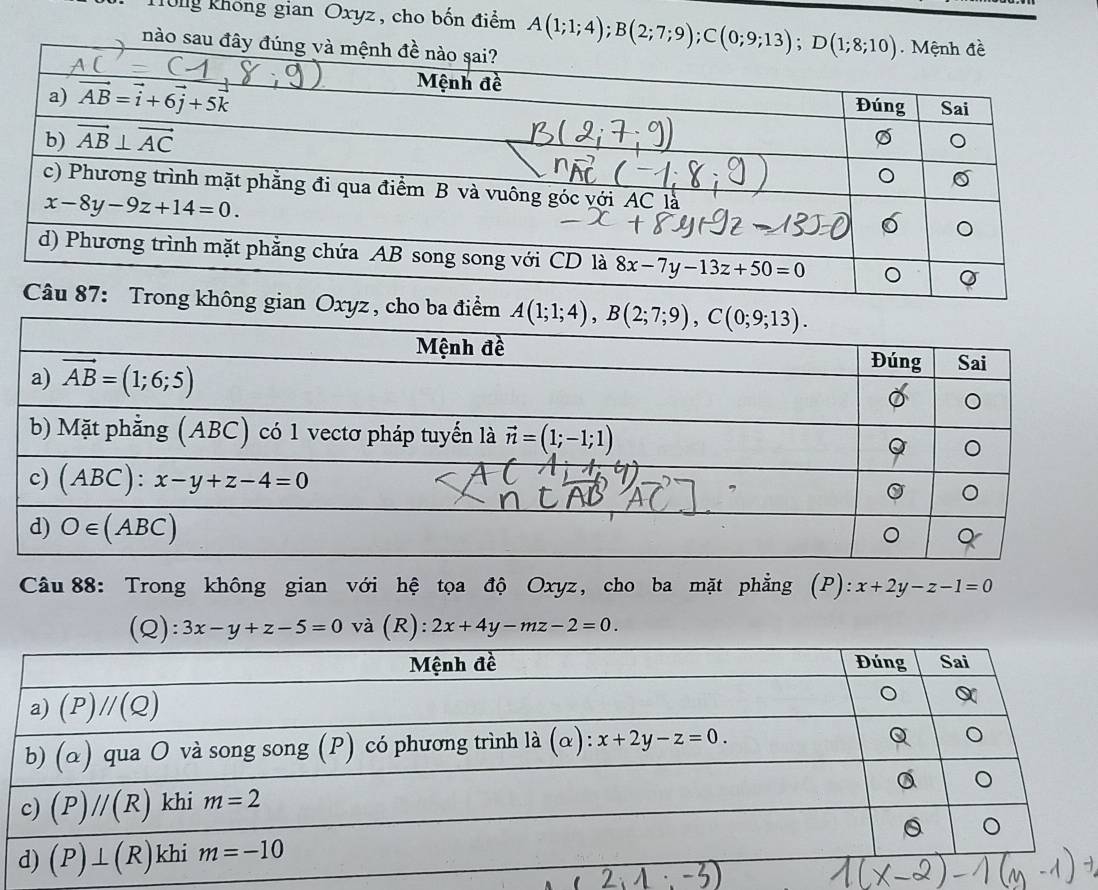 không gian Oxyz, cho bốn điểm A(1;1;4);B(2;7;9);C(0;9;13); D(1;8;10). Mệnh đề
nào sau đây đúng và mệnh đề nào sai?
AC = (-1,8;9)
Mệnh đề Đúng Sai
a) \overrightarrow{AB}=\vec{i}+6\vec{j}+5\vec{k}
b) \overrightarrow{AB}⊥\overrightarrow{AC}
B(2;7;9)
n\overrightarrow{AC} (-1;8;9)
c) Phương trình mặt phẳng đi qua điểm B và vuông góc với AC là
x-8y-9z+14=0.
-x+8y+9z-135=0
d) Phương trình mặt phẳng chứa AB song song với CD là 8x-7y-13z+50=0
Câu 87: Trong không gian Oxyz, cho ba điểm A(1;1;4), B(2;7;9), C(0;9;13).
Mệnh đề Đúng Sai
a) \overrightarrow{AB}=(1;6;5)
b) Mặt phẳng (ABC) có 1 vectơ pháp tuyến là \vec{n}=(1;-1;1)
A(1;1;4)
c) (ABC): x-y+z-4=0
n [\overrightarrow{AB},\overrightarrow{AC}]
d) O∈(ABC)
Câu 88: Trong không gian với hệ tọa độ Oxyz, cho ba mặt phẳng (P):x+2y-z-1=0
(Q):3x-y+z-5=0 và (R):2x+4y-mz-2=0.
Mệnh đề Đúng Sai
a) (P)//(Q)
b) (α) qua O và song song (P) có phương trình là (α):x+2y-z=0.
c) (P)//(R) khi m=2
d) (P)⊥(R)khi m=-10
(2,1;-3) 1(x-2)-1(y-1)+